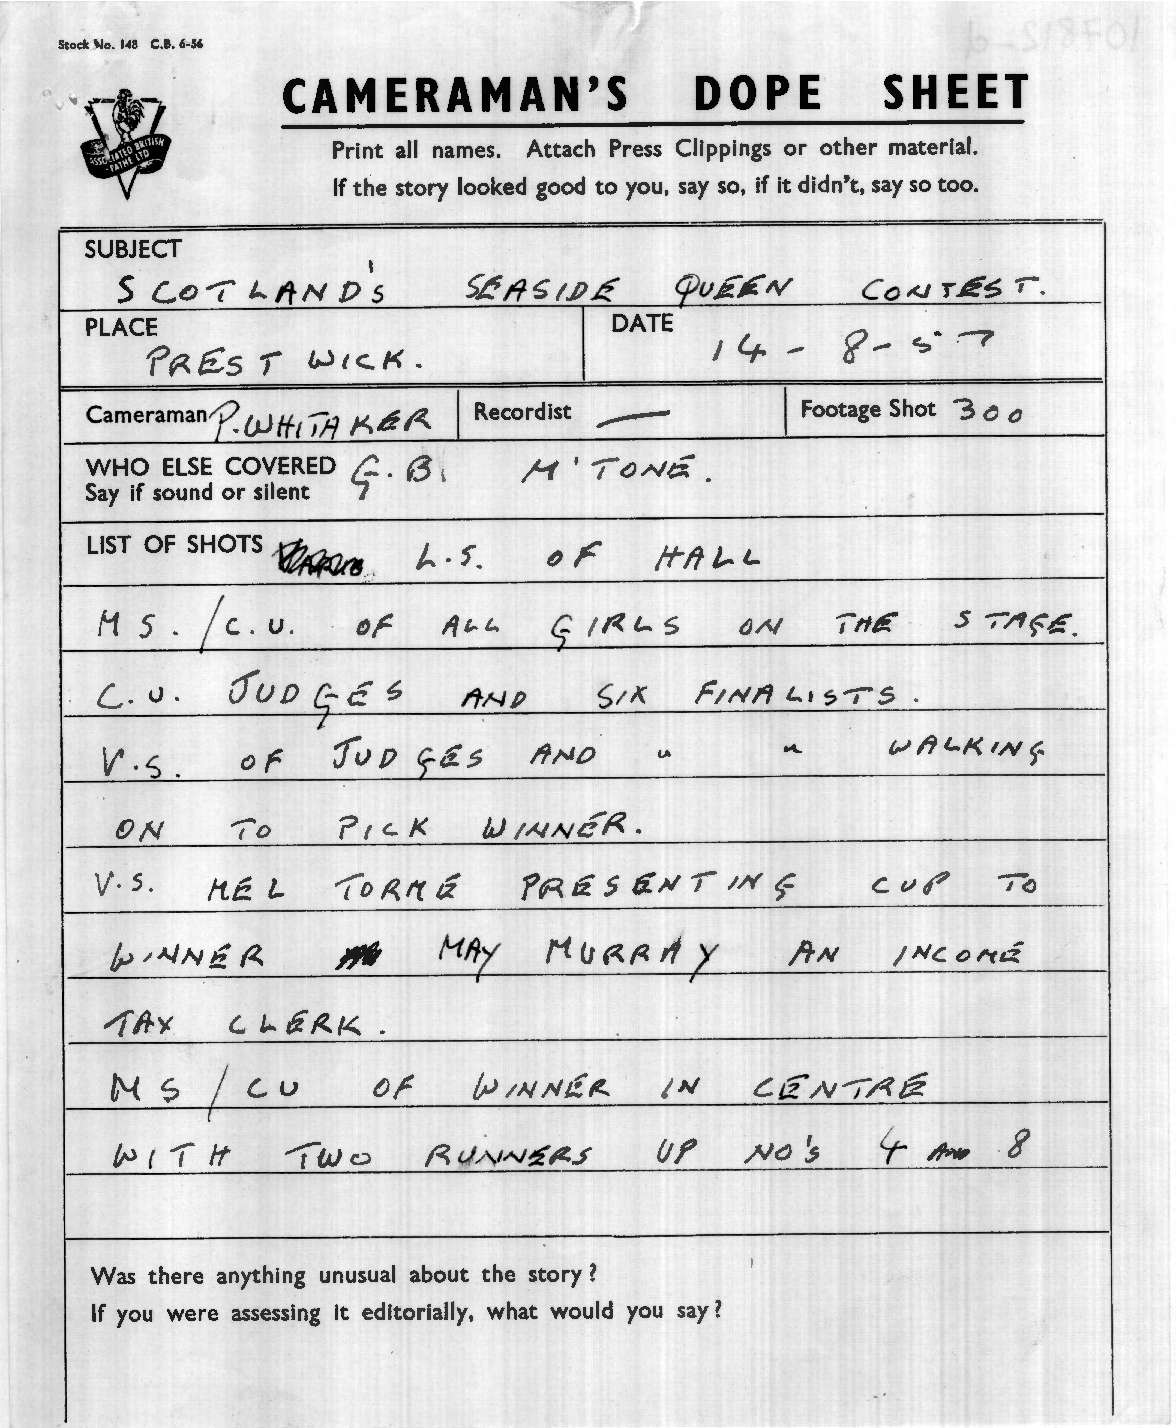 Stock No. 148 C.B. 6-56
CAMERAMAN'S DOPE SHEET
ASSOCIATED BRITISH
PATHE LTD
Print all names. Attach Press Clippings or other material.
If the story looked good to you, say so, if it didn't, say so too.
SUBJECT
SCOTLAND'S SEASIDE QUEEN CONTEST.
PLACE
PRESTWICK.
DATE
14-8-57
Cameraman P. WHITAKER
Recordist —
Footage Shot 300
WHO ELSE COVERED G.B. M'TONE.
Say if sound or silent
LIST OF SHOTS L.S. OF HALL
MS./C.U. OF ALL GIRLS ON THE STAGE.
C.U. JUDGES AND SIX FINALISTS.
V.S. OF JUDGES AND " " WALKING
ON TO PICK WINNER.
V.S. MEL TORME PRESENTING CUP TO
WINNER MAY MURRAY AN INCOME
TAX CLERK.
MS/CU OF WINNER IN CENTRE
WITH TWO RUNNERS UP NO'S 4 AND 8
Was there anything unusual about the story?
If you were assessing it editorially, what would you say?